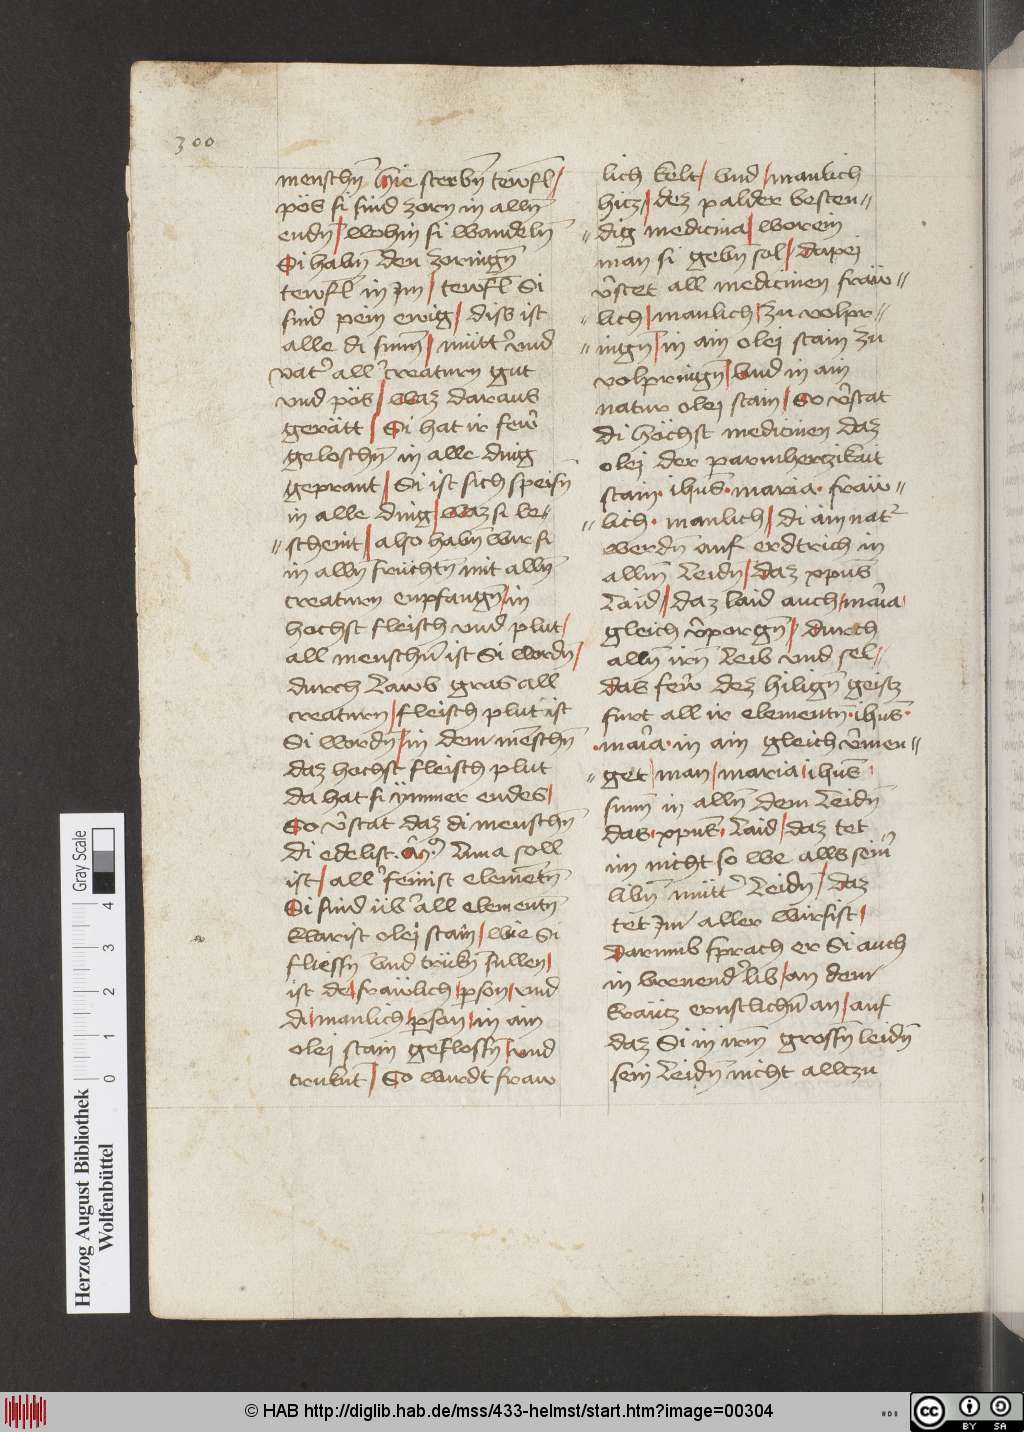 300
menschn̄ Wie sterbn̄ tewfl̄/
pös si sind zorn in alln̄
endn̄/ Wohin si wandeln̄
Si habn̄ den zoringn̄
tewfl̄ in Im/ tewfl̄ Si
sind pein ewig/ diss ist
alle di sunn̄/ mütt̓ vnd
vat̓ all̓ creaturn gut
vnd pös/ Waz daraus
gerätt/ Si hat ir few̓
geloschn̄ in alle ding
geprant/ Si ist sich speisn̄
in alle ding/ Waz si be-
"scheint/ also habn̄ wir si
in alln̄ früchtn̄ mit alln̄
creaturn enpfangn̄/in
hochst fleisch vnd plut/
all menschn̄ ist Si wordn̄/
durch Lawb gras all
creaturn/ fleisch plut ist
Si wordn̄/in dem mēschn̄
daz hochst fleisch plut
da hat si ymmer endes/
So v̓stat daz di menschn̄
di edelist. Luna soll
ist/ all̓ feinist elemētn̄
Si sind üb̓ all elementn̄
Kwarist olei stain/ wie Si
fliessn̄ Vnd trükn̄ sullen/
ist de/ fräwlich/ p̲son/ vnd
di/ manlich/ p̲son/ in ain
olei stain geflossn̄/ vnd
trukn̄t/ So wirdt fraw
lich kelt/ Vnd/ manlich
hitz/ dez palder besten"
"dig medicina/ worein
man si gebn̄ sol/ dapei
v̓stet all medicinen fräw"
"lich/ manlich/ Zu volpr"
"ingn̄/ in ain olei stain zu
volpringn̄/ Vnd in ain
natur olei stain/ So v̓stat
di höchst medicinen daz
olei der parmhertzikait
stain· ihūs· maria· fräw"
"lich· manlich/ di ain nat̓
werdn̄ auf erdtrich in
allm̄ Leidn̄/ Daz xpūs
Laid/ daz Laid auch/ mar̓ia
gleich v̓porgn̄/ durch
alln̄ irn̄ Leib vnd sel/
das few̓ dez hilign̄ geistz
furt all ir elementn̄· ihūs·
·mar̓ia· in ain gleich v̓men"
"get/ man/ maria/ ihūs
sunn̄ in alln̄ dem Leidn̄
das· xpūs· Laid/ daz tet
im nicht so we alls sein̓"
libn̄ mütt̓ Leidn̄/ daz
tet Im/ aller wirsist/
Darumb sprach er Si auch
in brenend̓ lib/ an dem
kräutz ernstlichn̄ an/ auf
daz Si in irm̄ grossn̄ leidn̄
sein Leidn̄ nicht alltzu
Herzog August Bibliothek
Wolfenbüttel
Gray Scale
0 1 2 3 4
© HAB http://diglib.hab.de/mss/433-helmst/start.htm?image=00304
HAB
cc BY SA